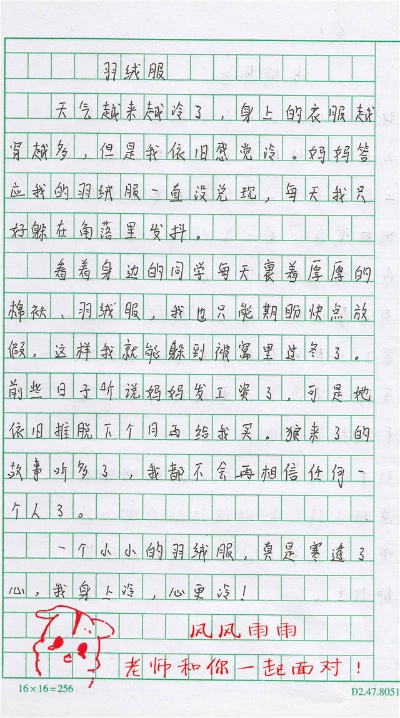 羽绒服
天气越来越冷了，身上的衣服越
穿越多，但是我依旧感觉冷。妈妈答
应我的羽绒服一直没兑现，每天我只
好躲在角落里发抖。
看着身边的同学每天裹着厚厚的
棉袄、羽绒服，我也只能期盼快点放
假，这样我就能躲到被窝里过冬了。
前些日子听说妈妈发工资了，可是她
依旧推脱下个月再给我买。狼来了的
故事听多了，我都不会再相信任何一
个人了。
一个小小的羽绒服，真是寒透了
心，我身上冷，心更冷！
风风雨雨
老师和你一起面对！
16×16=256
D2.47.8051